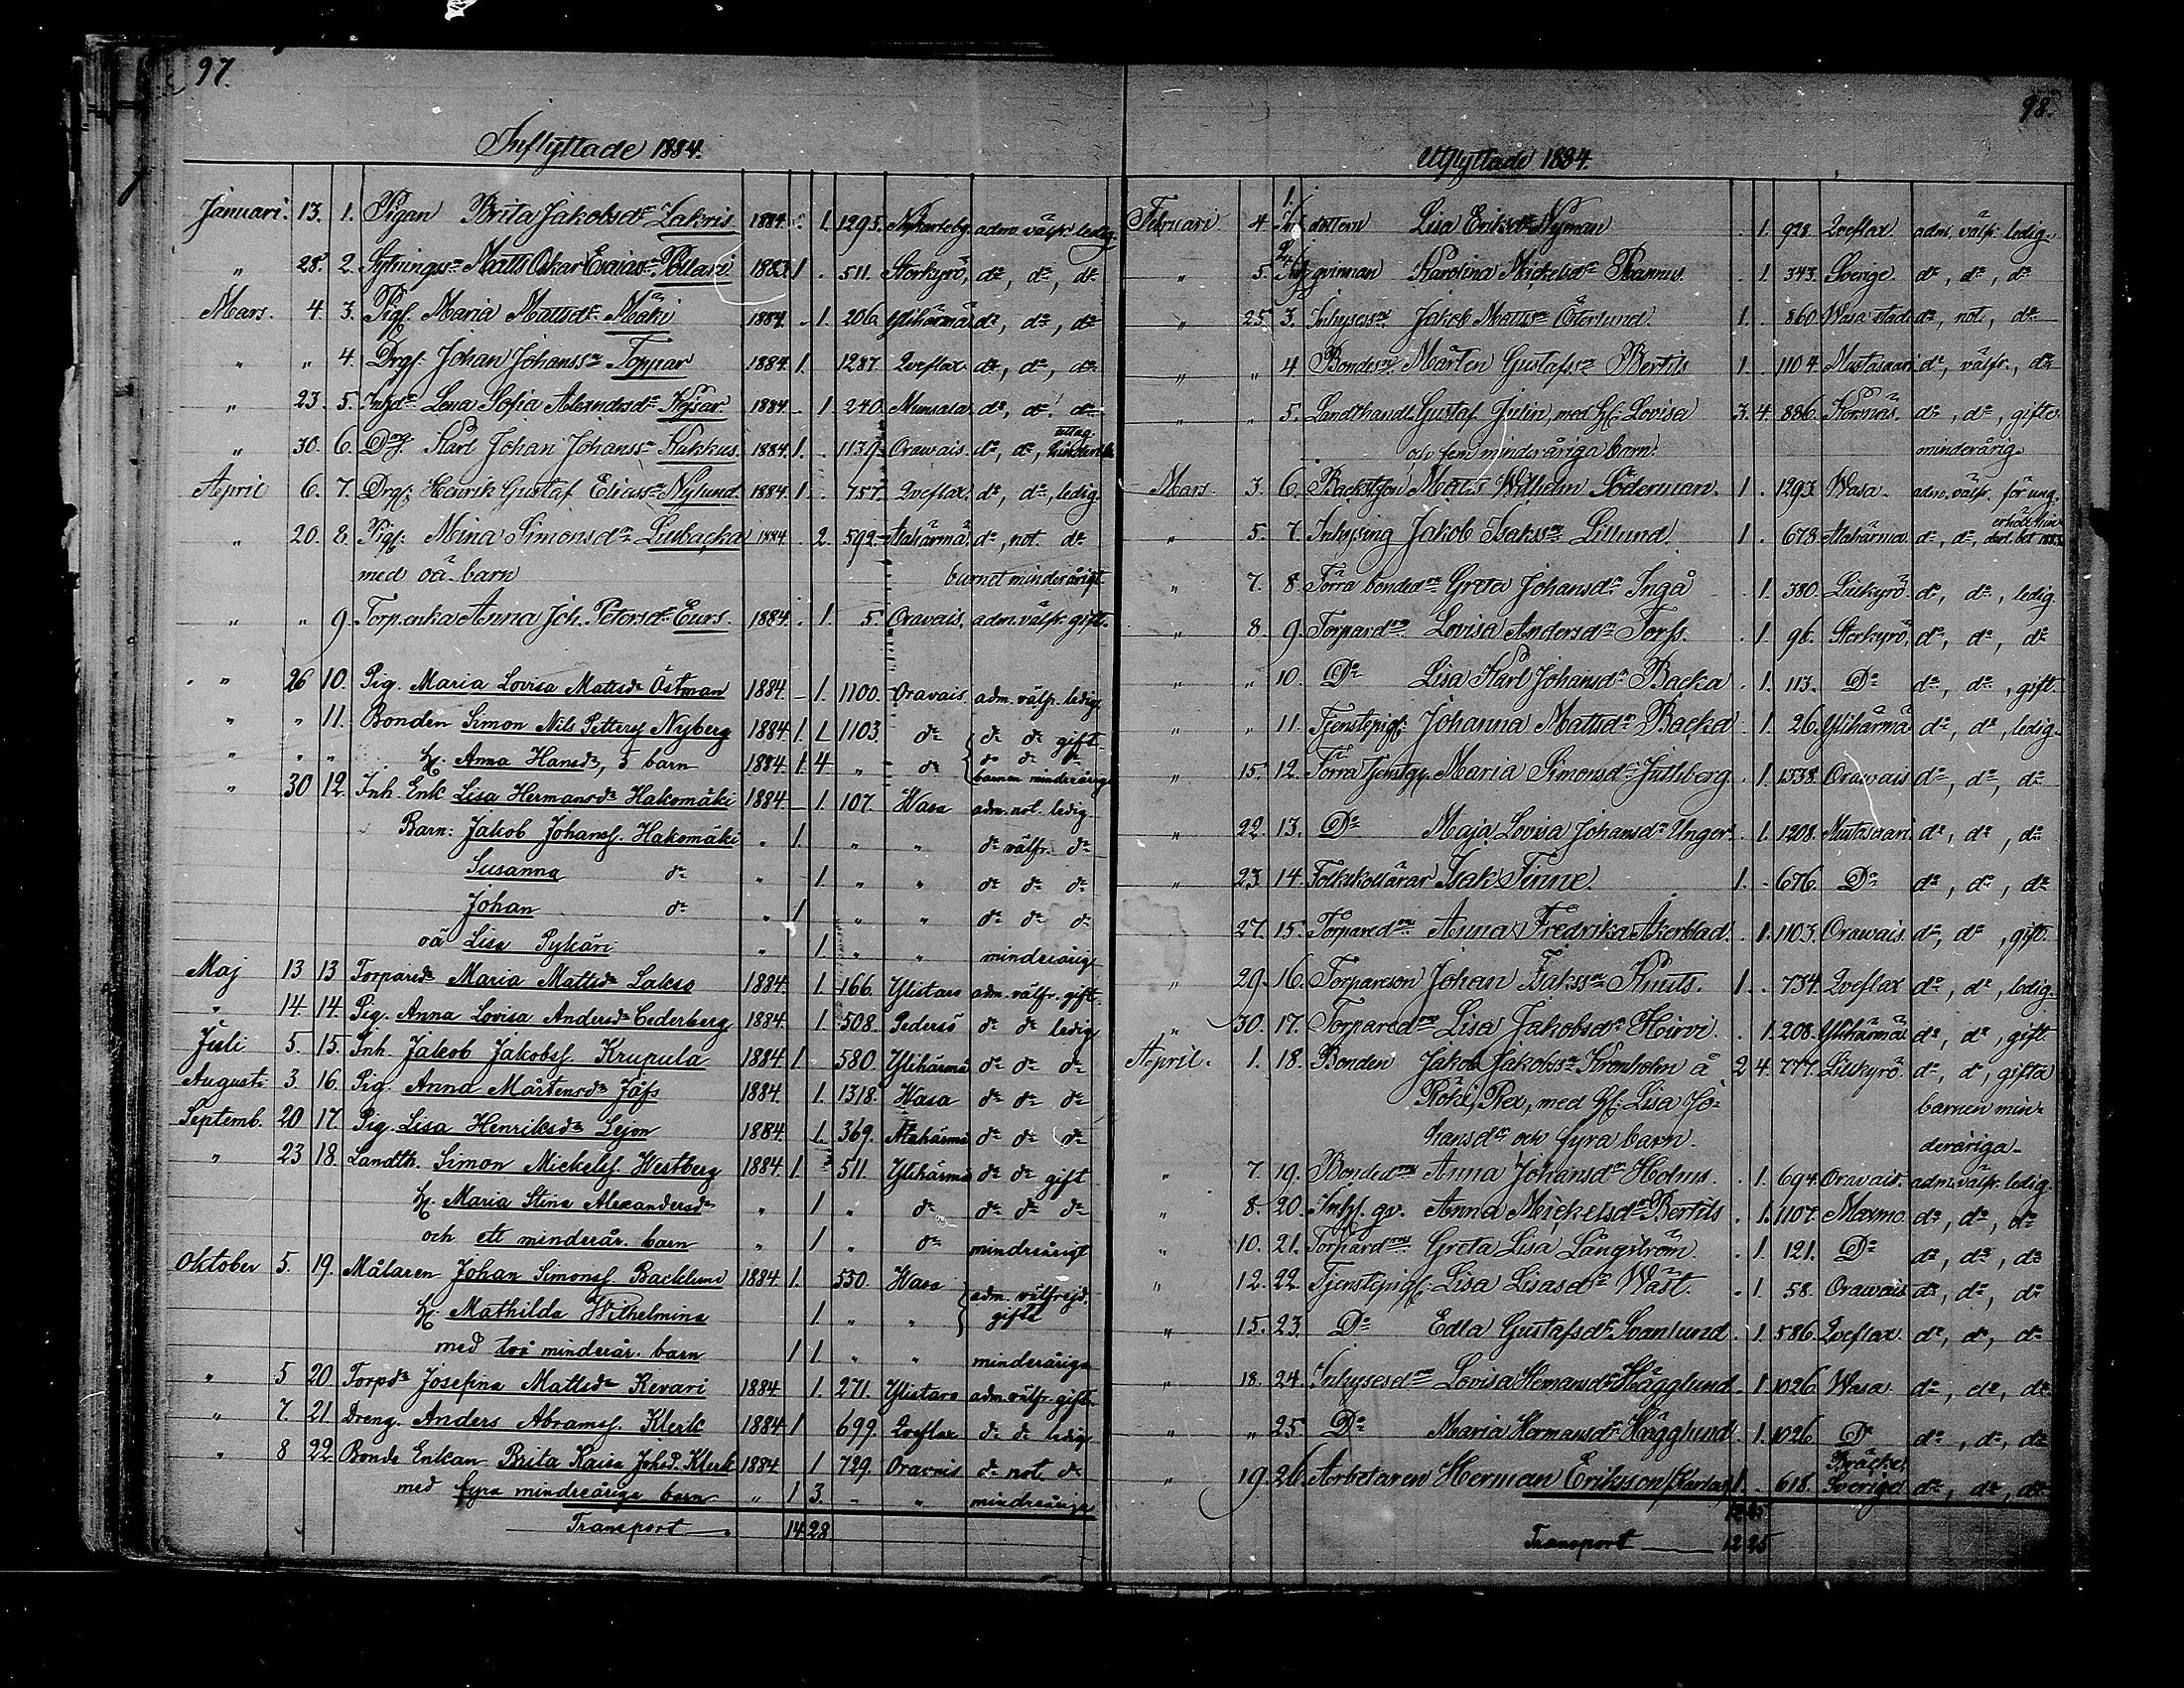 97.
Inflyttade 1884.
Januari. 13. 1. Pigan Brita Jakobsdr Zakris 1884. . 1. 1295. Nykarleby. adm. välfr. ledig.
" 28. 2. Sytningssn Matts Oskar Esaiassn Pellari 1883. 1 . 511. Storkyrö, do, do, do
Mars. 4. 3. Pig. Maria Mattsdr Mäki 1884. . 1. 206. Ylihärmä do, do, do
" " 4. Drg. Johan Johanssn Toppar 1884. 1. 1287. Qveflax. do, do, do
" 23. 5. Inhdr Lena Sofia Alexandersdr Kejsar. 1884. . 1 240. Munsala. do, do. do
" 30. 6. Drg. Karl Johan Johanssn Kakkus. 1884. 1. . 1139. Orawais. do, do,
April 6. 7. Drg. Henrik Gustaf Eliassn Nylund. 1884. 1 . 757. Qveflax. do, do, ledig
" 20. 8. Pig. Mina Simonsdr Luibacka 1884. . 2. 592. Alahärmä. do, not. do
med oä. barn barnet minderårigt.
" " 9. Torp.enka Anna Joh. Petersdr Eurs. 1884. . 1. 5. Oravais. adm. välfr. gift.
" 26 10. Pig. Maria Lovisa Mattsdr Östman 1884. – 1. 1100. Oravais. adm. välfr. ledig.
" " 11. Bonden Simon Nils Petterss Nyberg 1884. 1. 1. 1103. do do do gift
" " " H. Anna Hansdr, 5 barn 1884. 1. 4. " do do do do barnen minderåriga
" 30 12. Inh. Enk. Lisa Hermansdr Hakomäki 1884. – 1. 107. Wasa adm. not. ledig.
Barn: Jakob Johanss. Hakomäki " 1. " " do välfr. do
Susanna do " 1. " " do do do
Johan do " 1 " " do do do
oä Lisa Pykäri " 1. " " minderårig
Maj 13 13 Torparedr Maria Mattsdr Lakso 1884. 1. 166. Ylistaro adm. välfr. gift.
" 14. 14. Pig. Anna Lovisa Andersdr Cederberg 1884. 1. 508. Pedersö do do ledig
Juli 5. 15. Inh. Jakob Jakobss. Krupula 1884. 1. 580. Ylihärmä do do do
Augusti 3. 16. Pig. Anna Mårtensdr Jåfs 1884. 1. 1318. Wasa do do do
Septemb. 20 17. Pig. Lisa Henriksdr Lejon 1884. 1. 369. Alahärmä do do do
" 23 18. Landth. Simon Mickelss. Westberg 1884. 1. 511. Ylihärmä do do gift
H. Maria Stina Alexandersdr " 1 " do do do do
och ett minderår. barn " 1 " do minderårigt
Oktober 5. 19. Målaren Johan Simonss. Backlund 1884. 1. 550. Wasa adm. välfrejd.
H. Mathilda Wilhelmina 1. " " gifta
med två minderår. barn 1 1. " " minderåriga
" 5 20. Torpdr Josefina Mattsdr Kevari 1884. 1. 271. Ylistaro adm. välfr. gift.
" 7. 21. Dreng. Anders Abramss. Klerk 1884. 1 699. Qveflax do do ledig
" 8 22. Bonde Enkan Brita Kaisa Johsd. Klerk 1884. 1 729. Oravais do not. do
med fyra minderåriga barn " 1 3. " " minderåriga
Transport 14 28
98.
Utflyttade 1884.
Februari. 4. 1. dottern Lisa Eriksdr Nyman . 1. 928. Qveflax adm. välfr. ledig.
" 5. 2. Inh. qvinnan Karolina Mickelsdr Rannus. . 1. 343. Sverige. do, do, do
" 25. 3. Inhysessn Jakob Mattssn Österlund. 1. . 860. Wasa stad. do, not., do
" " 4. Bondesn Mårten Gustafssn Bertils 1. . 1104. Mustasaari do, välfr., do
" " 5. Landthandl. Gustaf Julin, med H. Lovisa 3. 4. 886. Korsnäs. do, do, gifte.
och fem minderåriga barn. minderårig.
Mars. 3. 6. Matts Wilhelm Söderman. 1. . 1293. Wasa. adm. välfr. för ung.
" 5. 7. Inhysing Jakob Isakssn Lillund. 1. 678. Alahärmä. do, do,
" 7. 8. Förra bondedn Greta Johansdr Ingå . 1. 380. Lillkyrö. do, do, ledig.
" 8. 9. Torpardn Lovisa Andersdr Forss. . 1. 96. Storkyrö. do, do, do
" " 10. Do Lisa Karl Johansdr Backa . 1. 113. Do do, do, gift.
" " 11. Tjenstepig. Johanna Mattsdr Backa . 1. 26. Ylihärmä do, do, ledig.
" 15. 12. Förra tjenstep. Maria Simonsdr Juthberg. . 1. 1338. Orawais do, do, do
" 22. 13. Do Maja Lovisa Johansdr Unger. . 1. 1208. Mustasaari. do, do, do
" 23. 14. Folkskollärar Isak Finne. 1. . 676. Do do, do, do
27. 15. Torparedn Anna Fredrika Åkerblad. . 1. 1103. Orawais. do, do, gift.
" 29. 16. Torpareson Johan Isakssn Knuts. 1. . 734. Qveflax do, do, ledig.
" 30. 17. Torparedn Lisa Jakobsdr Hirvi. . 1. 208. Ylihärmä. do, do, gift.
April. 1. 18. Bonden Jakob Jakobssn Kronholm å 2 4. 777. Lillkyrö. do, do, gifta
Röki, Rex, med H. Lisa Jo- barnen min-
hansdr och fyra barn. deråriga.
" 7. 19. Bondedn Anna Johansdr Holms. . 1. 694. Oravais. adm. välfr. ledig.
" 8. 20. Inhys. qv. Anna Mickelsdr Bertils . 1. 1107. Maxmo. do, do, do
" 10. 21. Torpardn Greta Lisa Långström. . 1. 121. Do do, do, do
" 12. 22. Tjenstepig. Lisa Lisasdr Wäst. . 1. 58. Orawais do, do, do
" 15. 23. Do Edla Gustafsdr Svanlund . 1. 586. Qveflax. do, do, do
" 18. 24. Inhysesdn Lovisa Hemansdr Hägglund . 1. 1026. Wasa. do, do, do
" " 25. Do Maria Hermansdr Hägglund . 1. 1026. Do do, do, do
" 19. 26. Arbetaren Herman Eriksson 1. . 618. Bräcke, Sverige. do, do, do
12 25
Transport 12 25